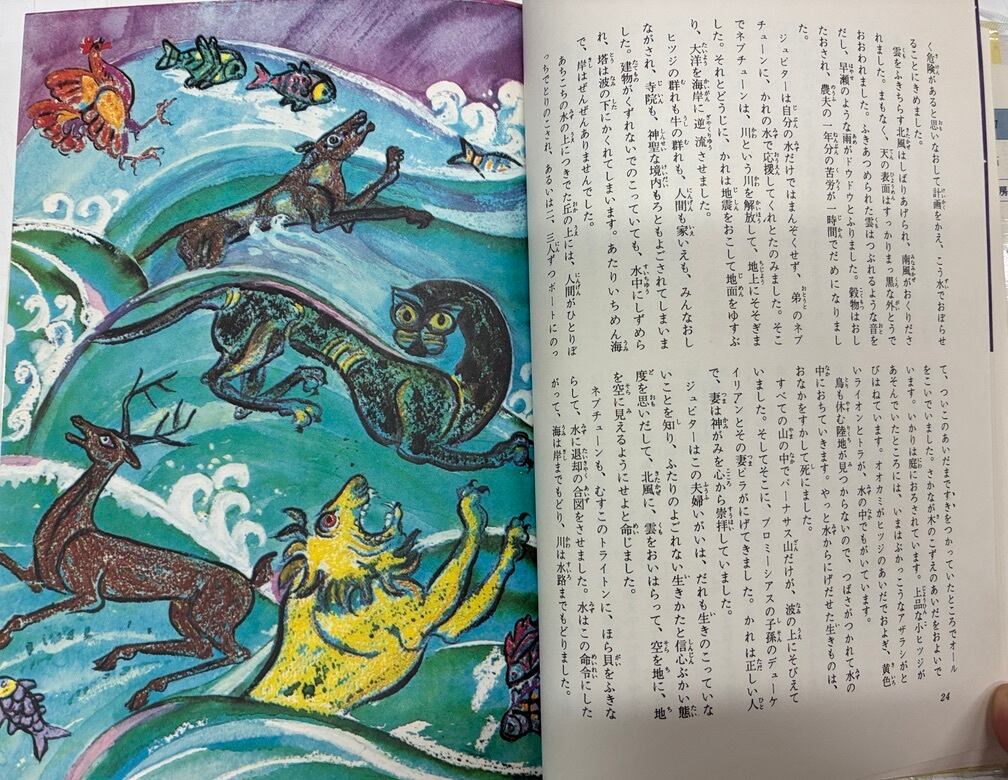 く危険があると思いなおして計画をかえ、こう水でおぼらせ
ることにきめました。
雲をふきちらす北風はしばりあげられ、南風がおくりださ
れました。まもなく、天の表面はすっかりまっ黒な外とうで
おおわれました。ふきあつめられた雲はつぶれるような音を
だし、早瀬のような雨がドウドウとふりました。穀物はおし
たおされ、農夫の一年分の苦労が一時間でだめになりまし
た。
ジュピターは自分の水だけではまんぞくせず、弟のネプ
チューンに、かれの水で応援してくれとたのみました。そこ
でネプチューンは、川という川を解放して、地上にそそぎま
した。それとどうじに、かれは地震をおこして地面をゆすぶ
り、大洋を海岸に逆流させました。
ヒツジの群れも牛の群れも、人間も家いえも、みんなおし
ながされ、寺院も、神聖な境内もろともよごされてしまいま
した。建物がくずれないでのこっていても、水中にしずめら
れ、塔は波の下にかくれてしまいます。あたりいちめん海
で、岸はぜんぜんありませんでした。
あちこちの水の上につきでた丘の上には、人間がひとりぽ
っちでとりのこされ、あるいは二、三人ずつボートにのっ
て、ついこのあいだまですきをつかっていたところでオール
をこいでいました。さかなが木のこずえのあいだをおよいで
います。いかりは庭におろされています。上品な小ヒツジが
あそんでいたところには、いまはぶかっこうなアザラシがと
びはねています。オオカミがヒツジのあいだでおよぎ、黄色
いライオンとトラが、水の中でもがいています。
鳥も休む陸地が見つからないので、つばさがつかれて水の
中におちていきます。やっと水からにげだせた生きものは、
おなかをすかして死にました。
すべての山の中でパーナサス山だけが、波の上にそびえて
いました。そしてそこに、プロミーシアスの子孫のデューケ
イリアンとその妻ピラがにげてきました。かれは正しい人
で、妻は神がみを心から崇拝していました。
ジュピターはこの夫婦いがいは、だれも生きのこっていな
いことを知り、ふたりのよごれない生きかたと信心ぶかい態
度を思いだして、北風に、雲をおいはらって、空を地に、地
を空に見えるようにせよと命じました。
ネプチューンも、むすこのトライトンに、ほら貝をふきな
らして、水に退却の合図をさせました。水はこの命令にした
がって、海は岸までもどり、川は水路までもどりました。
24